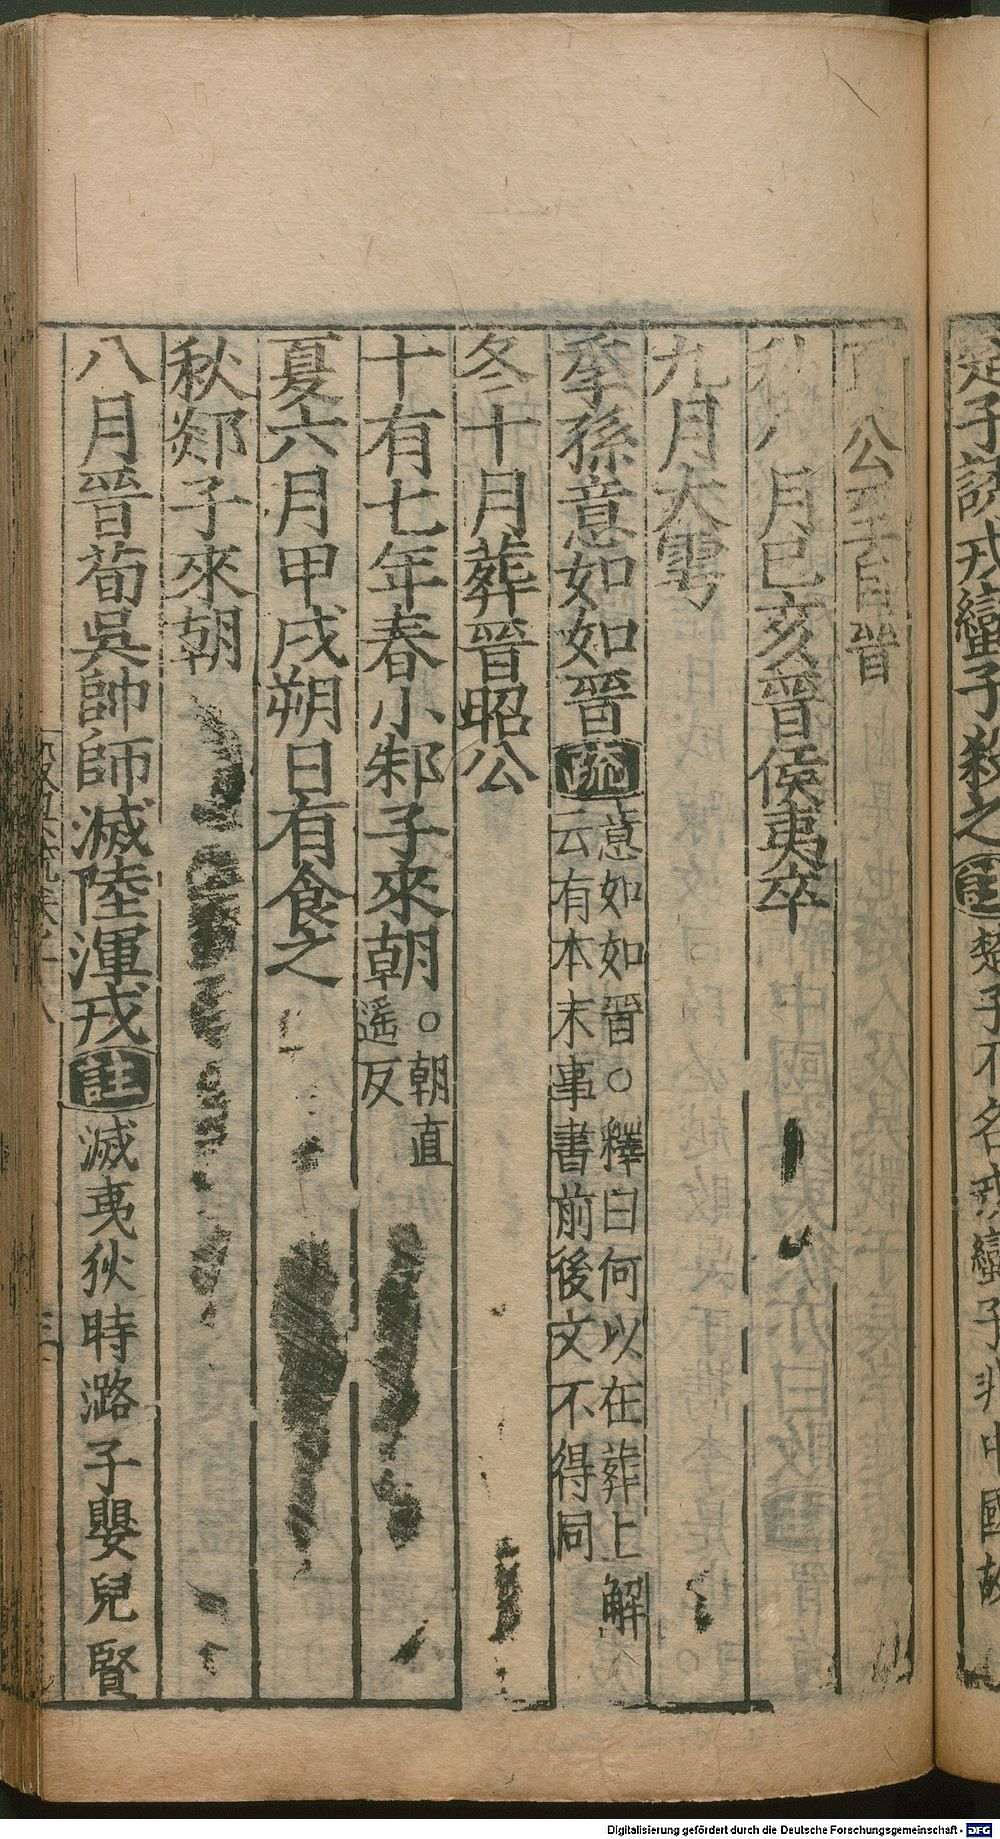 楚子誘戎蠻子殺之註楚子不名戎蠻子非中國故
夏公至自晉
秋八月巳亥晉侯夷卒
九月大雩
季孫意如如晉疏意如如晉○釋曰何以在葬上解
云有本末事書前後文不得同
冬十月葬晉昭公
十有七年春小邾子來朝○朝直
遥反
夏六月甲戌朔日有食之
秋郯子來朝
八月晉荀吳帥師滅陸渾戎註滅夷狄時潞子嬰兒賢
Digitalisierung gefördert durch die Deutsche Forschungsgemeinschaft - DFG